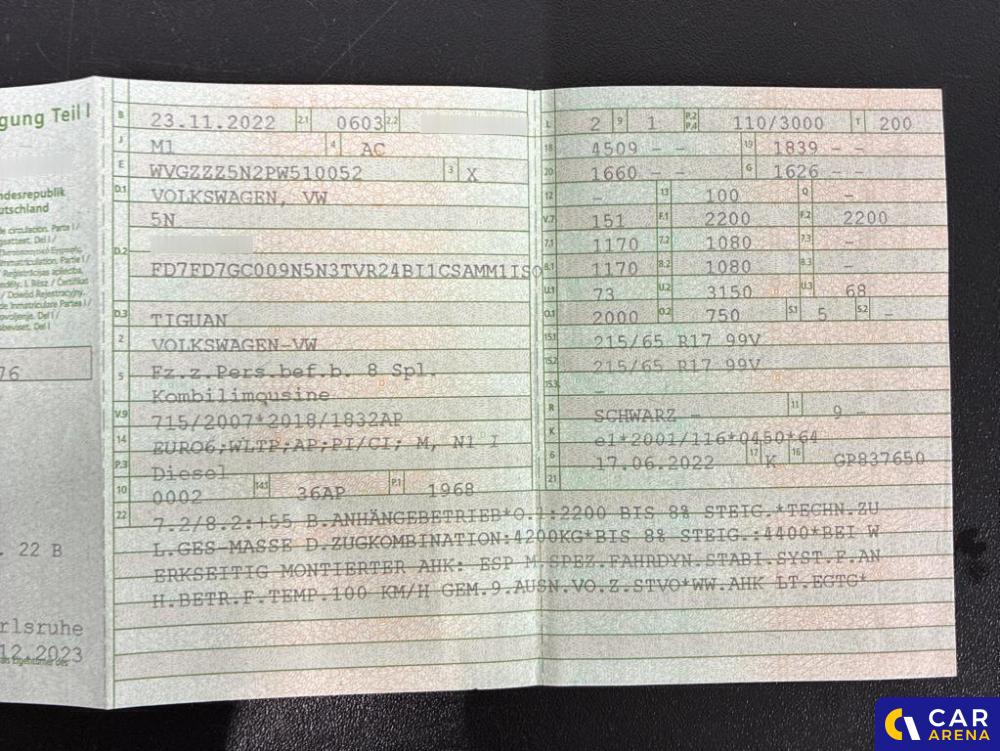 gung Teil I
B 23.11.2022 2.1 0603 2.2
J M1 4 AC
E WVGZZZ5N2PW510052 3 X
D.1 VOLKSWAGEN, VW
5N
D.2
FD7FD7GC009N5N3TVR24BI1CSAMM1ISO
D.3 TIGUAN
2 VOLKSWAGEN-VW
5 Fz.z.Pers.bef.b. 8 Spl.
Kombilimousine
V.9 715/2007*2018/1832AP
14 EURO6;WLTP;AP;PI/CI; M, N1 I
P.3 Diesel
10 0002 14.1 36AP P.1 1968
L 2 9 1 P.2 P.4 110/3000 T 200
18 4509 – – 19 1839 – –
20 1660 – – G 1626 – –
12 – 13 100 Q –
V.7 151 F.1 2200 F.2 2200
7.1 1170 7.2 1080 7.3 –
8.1 1170 8.2 1080 8.3 –
U.1 73 U.2 3150 U.3 68
O.1 2000 O.2 750 S.1 5 S.2 –
15.1 215/65 R17 99V
15.2 215/65 R17 99V
15.3 –
R SCHWARZ – 11 9 –
K e1*2001/116*0450*64
6 17.06.2022 17 K 16 GP837650
21
22 7.2/8.2:+55 B.ANHÄNGEBETRIEB*O.1:2200 BIS 8% STEIG.*TECHN.ZU
L.GES-MASSE D.ZUGKOMBINATION:4200KG*BIS 8% STEIG.:4400*BEI W
ERKSEITIG MONTIERTER AHK: ESP M.SPEZ.FAHRDYN.STABI.SYST.F.AN
H.BETR.F.TEMP.100 KM/H GEM.9.AUSN.VO.Z.STVO*WW.AHK LT.EGTG*
ndesrepublik
utschland
76
. 22 B
rlsruhe
12.2023
CAR
ARENA